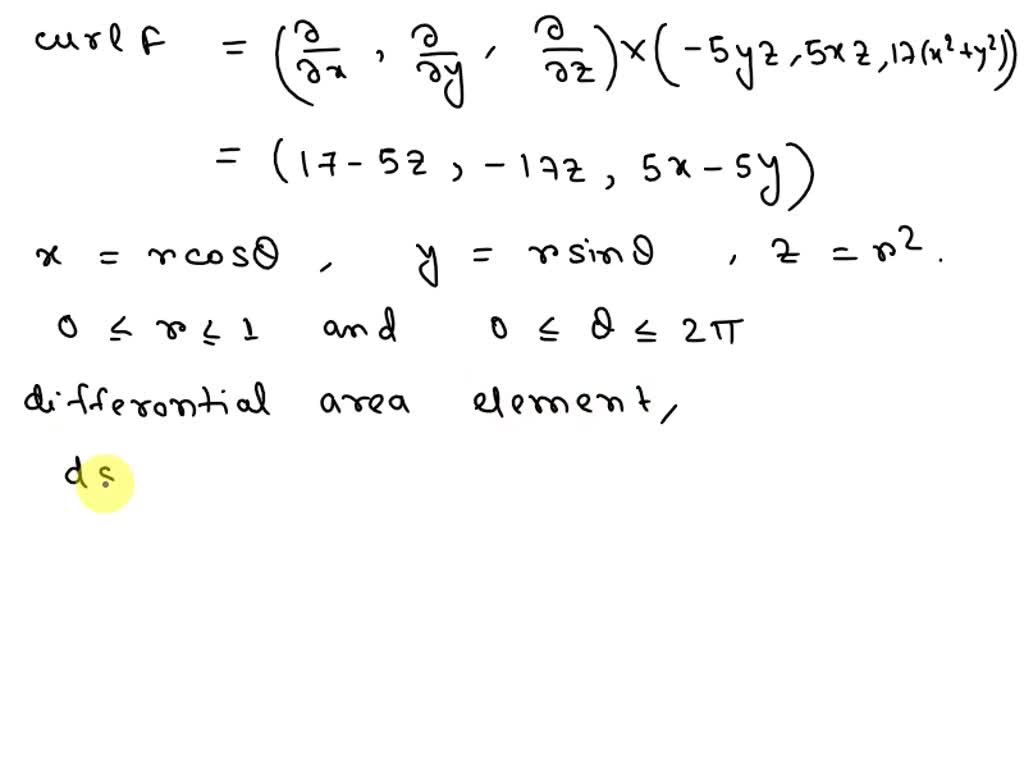 curl F = (∂/∂x, ∂/∂y, ∂/∂z) × (-5yz, 5xz, 17(x²+y²))
= (17-5z, -17z, 5x-5y)
x = rcosθ, y = rsinθ, z = r².
0 ≤ r ≤ 1 and 0 ≤ θ ≤ 2π
differontial area element,
ds